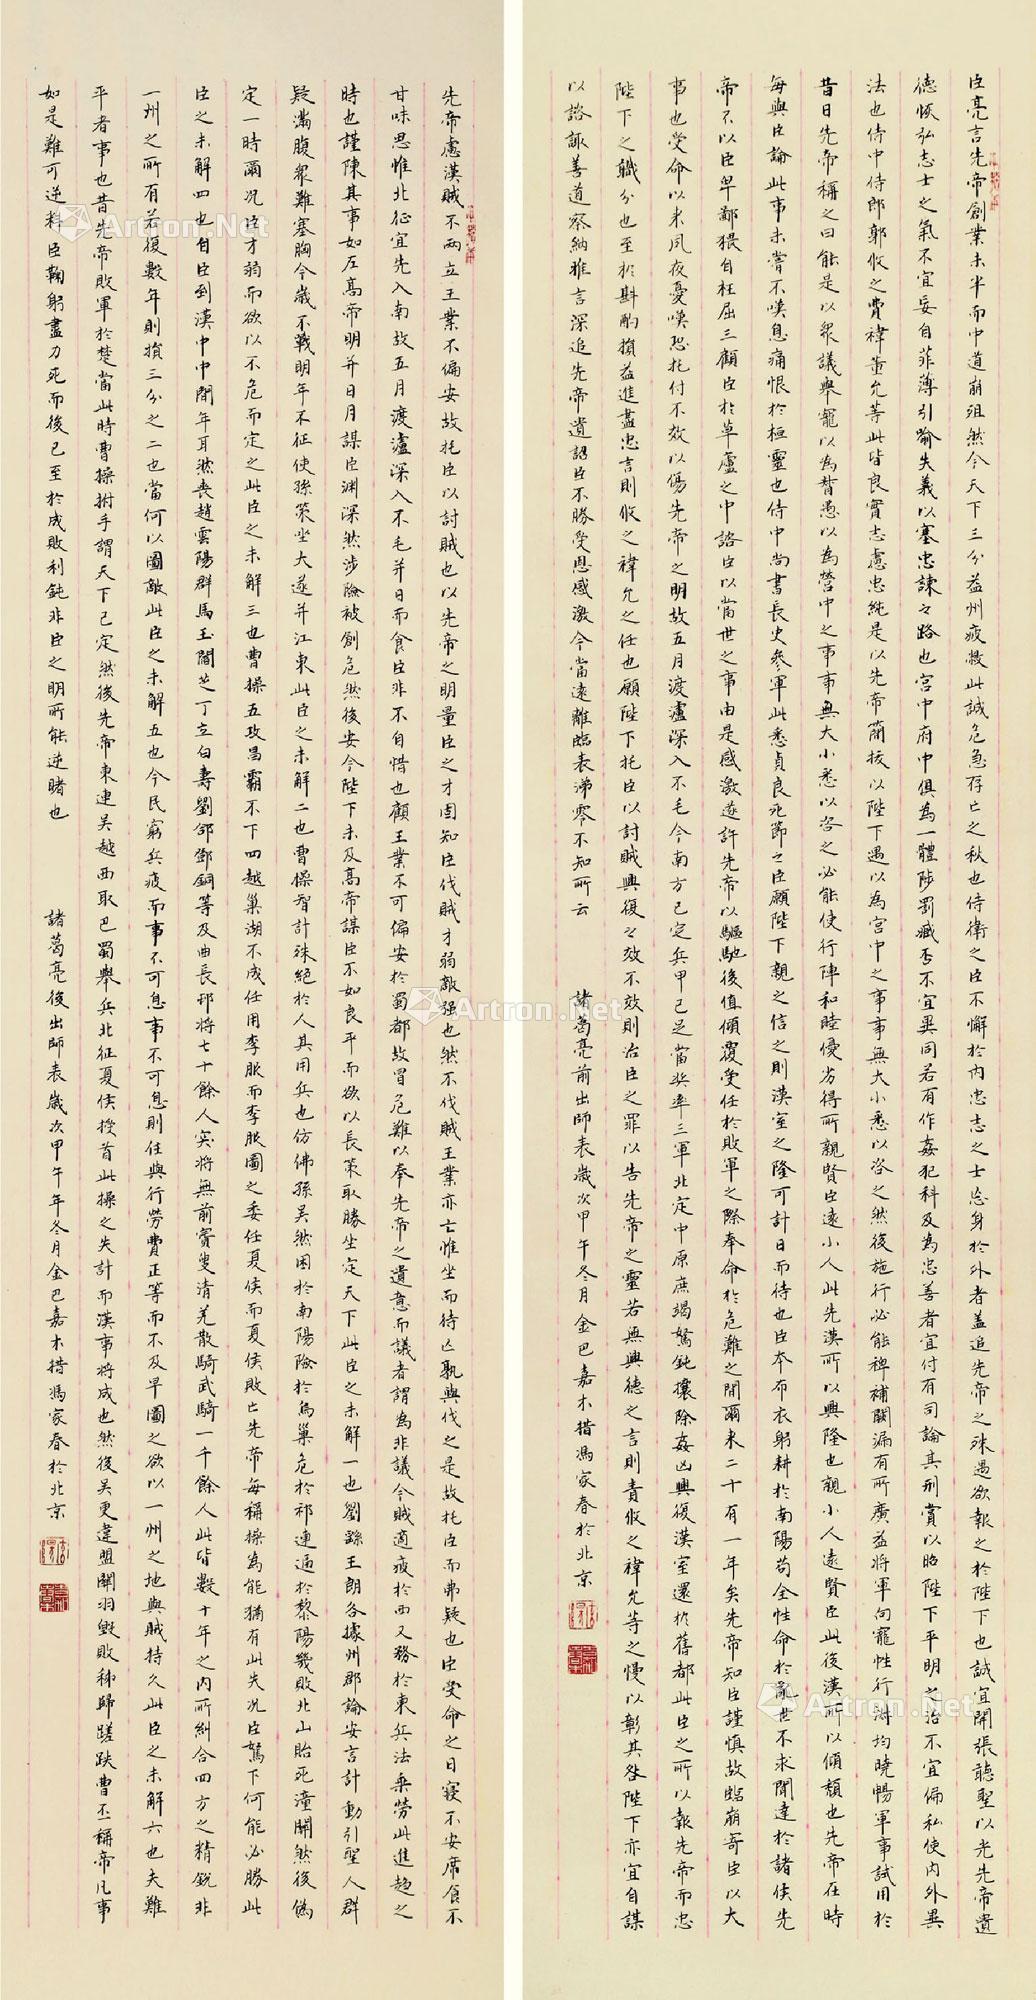 臣亮言先帝創業未半而中道崩殂然今天下三分益州疲弊此誠危急存亡之秋也侍衛之臣不懈於內忠志之士忘身於外者蓋追先帝之殊遇欲報之於陛下也誠宜開張聽聖以光先帝遺
德恢弘志士之氣不宜妄自菲薄引喻失義以塞忠諫之路也宮中府中俱為一體陟罰臧否不宜異同若有作姦犯科及為忠善者宜付有司論其刑賞以昭陛下平明之治不宜偏私使內外異
法也侍中侍郎郭攸之費禕董允等此皆良實志慮忠純是以先帝簡拔以陛下遇以為宮中之事事無大小悉以咨之然後施行必能裨補闕漏有所廣益將軍向寵性行淑均曉暢軍事試用於
昔日先帝稱之曰能是以眾議舉寵以為督愚以為營中之事事無大小悉以咨之必能使行陣和睦優劣得所親賢臣遠小人此先漢所以興隆也親小人遠賢臣此後漢所以傾頹也先帝在時
每與臣論此事未嘗不嘆息痛恨於桓靈也侍中尚書長史參軍此悉貞良死節之臣願陛下親之信之則漢室之隆可計日而待也臣本布衣躬耕於南陽苟全性命於亂世不求聞達於諸侯先
帝不以臣卑鄙猥自枉屈三顧臣於草廬之中諮臣以當世之事由是感激遂許先帝以驅馳後值傾覆受任於敗軍之際奉命於危難之間爾來二十有一年矣先帝知臣謹慎故臨崩寄臣以大
事也受命以來夙夜憂嘆恐托付不效以傷先帝之明故五月渡瀘深入不毛今南方已定兵甲已足當獎率三軍北定中原庶竭駑鈍攘除姦凶興復漢室還於舊都此臣之所以報先帝而忠
陛下之職分也至於斟酌損益進盡忠言則攸之禕允之任也願陛下托臣以討賊興復之效不效則治臣之罪以告先帝之靈若無興德之言則責攸之禕允等之慢以彰其咎陛下亦宜自謀
以諮諏善道察納雅言深追先帝遺詔臣不勝受恩感激今當遠離臨表涕零不知所云 諸葛亮前出師表歲次甲午冬月金巴嘉木措馮家春於北京
先帝慮漢賊不兩立王業不偏安故托臣以討賊也以先帝之明量臣之才固知臣伐賊才弱敵強也然不伐賊王業亦亡惟坐而待亡孰與伐之是故托臣而弗疑也臣受命之日寢不安席食不
甘味思惟北征宜先入南故五月渡瀘深入不毛并日而食臣非不自惜也顧王業不可偏安於蜀都故冒危難以奉先帝之遺意而議者謂為非議今賊適疲於西又務於東兵法乘勞此進趨之
時也謹陳其事如左高帝明并日月謀臣淵深然涉險被創危然後安今陛下未及高帝謀臣不如良平而欲以長策取勝坐定天下此臣之未解一也劉繇王朗各據州郡論安言計動引聖人群
疑滿腹眾難塞胸今歲不戰明年不征使孫策坐大遂并江東此臣之未解二也曹操智計殊絕於人其用兵也仿佛孫吳然困於南陽險於烏巢危於祁連逼於黎陽幾敗北山殆死潼關然後偽
定一時爾況臣才弱而欲以不危而定之此臣之未解三也曹操五攻昌霸不下四越巢湖不成任用李服而李服圖之委任夏侯而夏侯敗亡先帝每稱操為能猶有此失況臣駑下何能必勝此
臣之未解四也自臣到漢中中間年耳然喪趙雲陽群馬玉閻芝丁立白壽劉郃鄧銅等及曲長邢將七十餘人突將無前賨叟清羌散騎武騎一千餘人此皆數十年之內所糾合四方之精銳非
一州之所有若復數年則損三分之二也當何以圖敵此臣之未解五也今民窮兵疲而事不可息事不可息則住與行勞費正等而不及早圖之欲以一州之地與賊持久此臣之未解六也夫難
平者事也昔先帝敗軍於楚當此時曹操拊手謂天下已定然後先帝東連吳越西取巴蜀舉兵北征夏侯授首此操之失計而漢事將成也然後吳更違盟關羽毀敗秭歸蹉跌曹丕稱帝凡事
如是難可逆料臣鞠躬盡力死而後已至於成敗利鈍非臣之明所能逆睹也 諸葛亮後出師表歲次甲午年冬月金巴嘉木措馮家春於北京
Artron.Net
Artron.Net
Artron.Net
Artron.Net
Artron.Net
Artron.Net